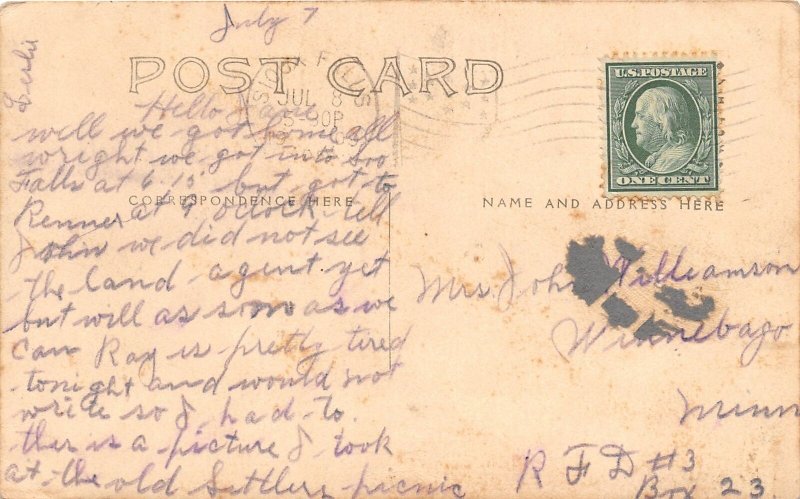 July 7
POST CARD
SIOUX FALLS
JUL 8
30P
U.S. POSTAGE
ONE CENT
CORRESPONDENCE HERE
NAME AND ADDRESS HERE
Hello
well we got home all
wright we got into Soo
Falls at 6 15 but got to
Renner at 9 oclock tell
John we did not see
the land agent yet
but will as soon as we
can Ray is pretty tired
tonight and would not
write so I had to.
this is a picture I took
at the old Settlers picnic
Leslie
Mrs. John Williamson
Winnebago
Minn
R F D #3
Box 23